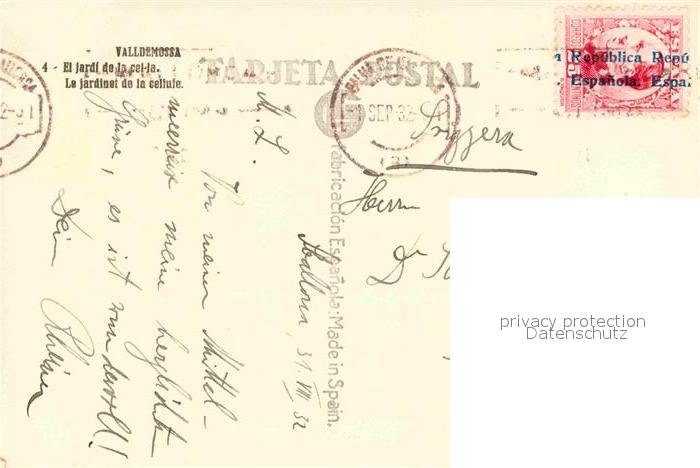 VALLDEMOSSA
4 - El jardí de la cel·la.
Le jardinet de la cellule.
TARJETA POSTAL
SEP 32
República Repú
. Española. Espa.
Herrn
Dr
Fabricación Española: Made in Spain.
31. VIII 32
M. L.
Von meiner Mittel-
meerreise meine herzlichsten
Grüsse, es ist wundervoll!
Dein
privacy protection
Datenschutz